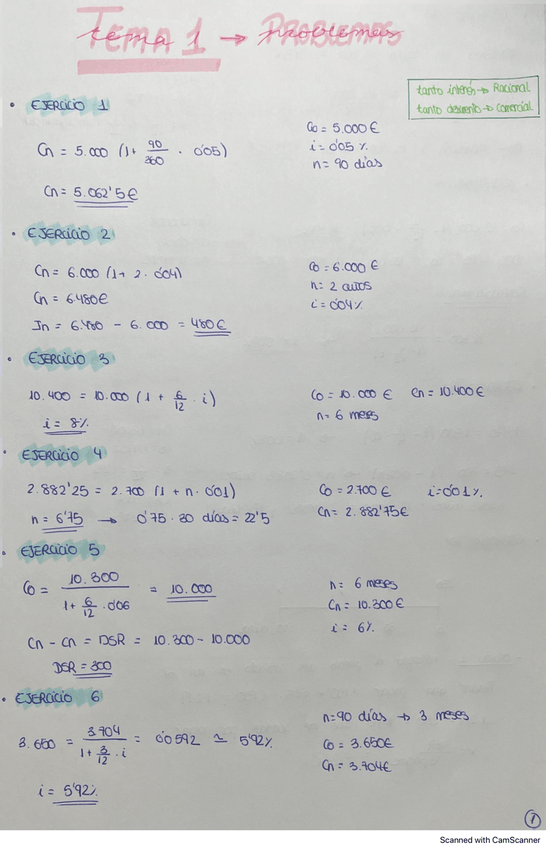 TEMA 1 → PROBLEMAS
tema 1 problemas
tanto interés → Racional
tanto descuento → Comercial
• EJERCICIO 1
Cn = 5.000 (1 + 90/360 · 0'05)
Cn = 5.062'5€
C0 = 5.000€
i = 0'05 %
n = 90 días
• EJERCICIO 2
Cn = 6.000 (1 + 2 · 0'04)
Cn = 6480€
In = 6.480 - 6.000 = 480€
C0 = 6.000 €
n = 2 años
i = 0'04%
• EJERCICIO 3
10.400 = 10.000 (1 + 6/12 · i)
i = 8%
C0 = 10.000 € Cn = 10.400€
n = 6 meses
• EJERCICIO 4
2.882'25 = 2.700 (1 + n · 0'01)
n = 6'75 → 0'75 · 30 días = 22'5
C0 = 2.700€ i = 0'01%
Cn = 2.882'75€
• EJERCICIO 5
C0 = 10.300 / 1 + 6/12 · 0'06 = 10.000
Cn - Cn = DSR = 10.300 - 10.000
DSR = 300
n = 6 meses
Cn = 10.300€
i = 6%
• EJERCICIO 6
3.650 = 3.704 / 1 + 3/12 · i = 0'0592 ≃ 5'92%
i = 5'92%
n = 90 días → 3 meses
C0 = 3.650€
Cn = 3.704€
1
Scanned with CamScanner